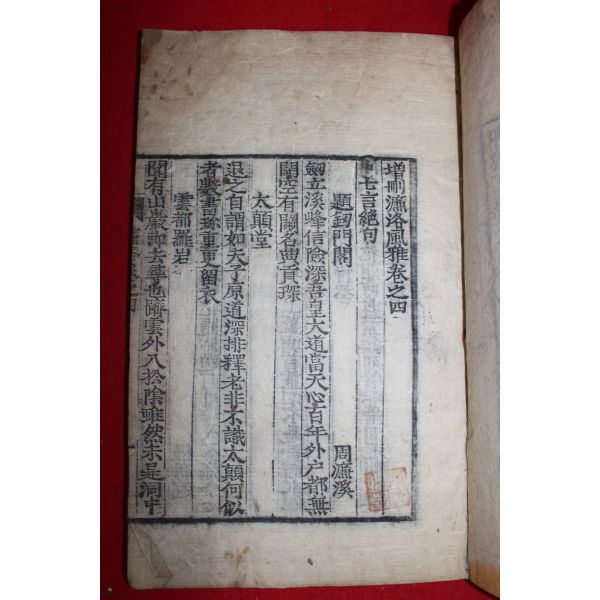 增刪濂洛風雅卷之四
七言絶句
題劔門閣 周濂溪
劔立溪峰信險深吾皇大道當天心百年外戶都無
閉空有關名貢琛
太顛堂
退之自謂如夫子原道深排釋老非不識太顛何似
者數書珎重更留衣
雲都羅岩
聞有山巖即去尋也躋雲外入松陰雖然未是洞中